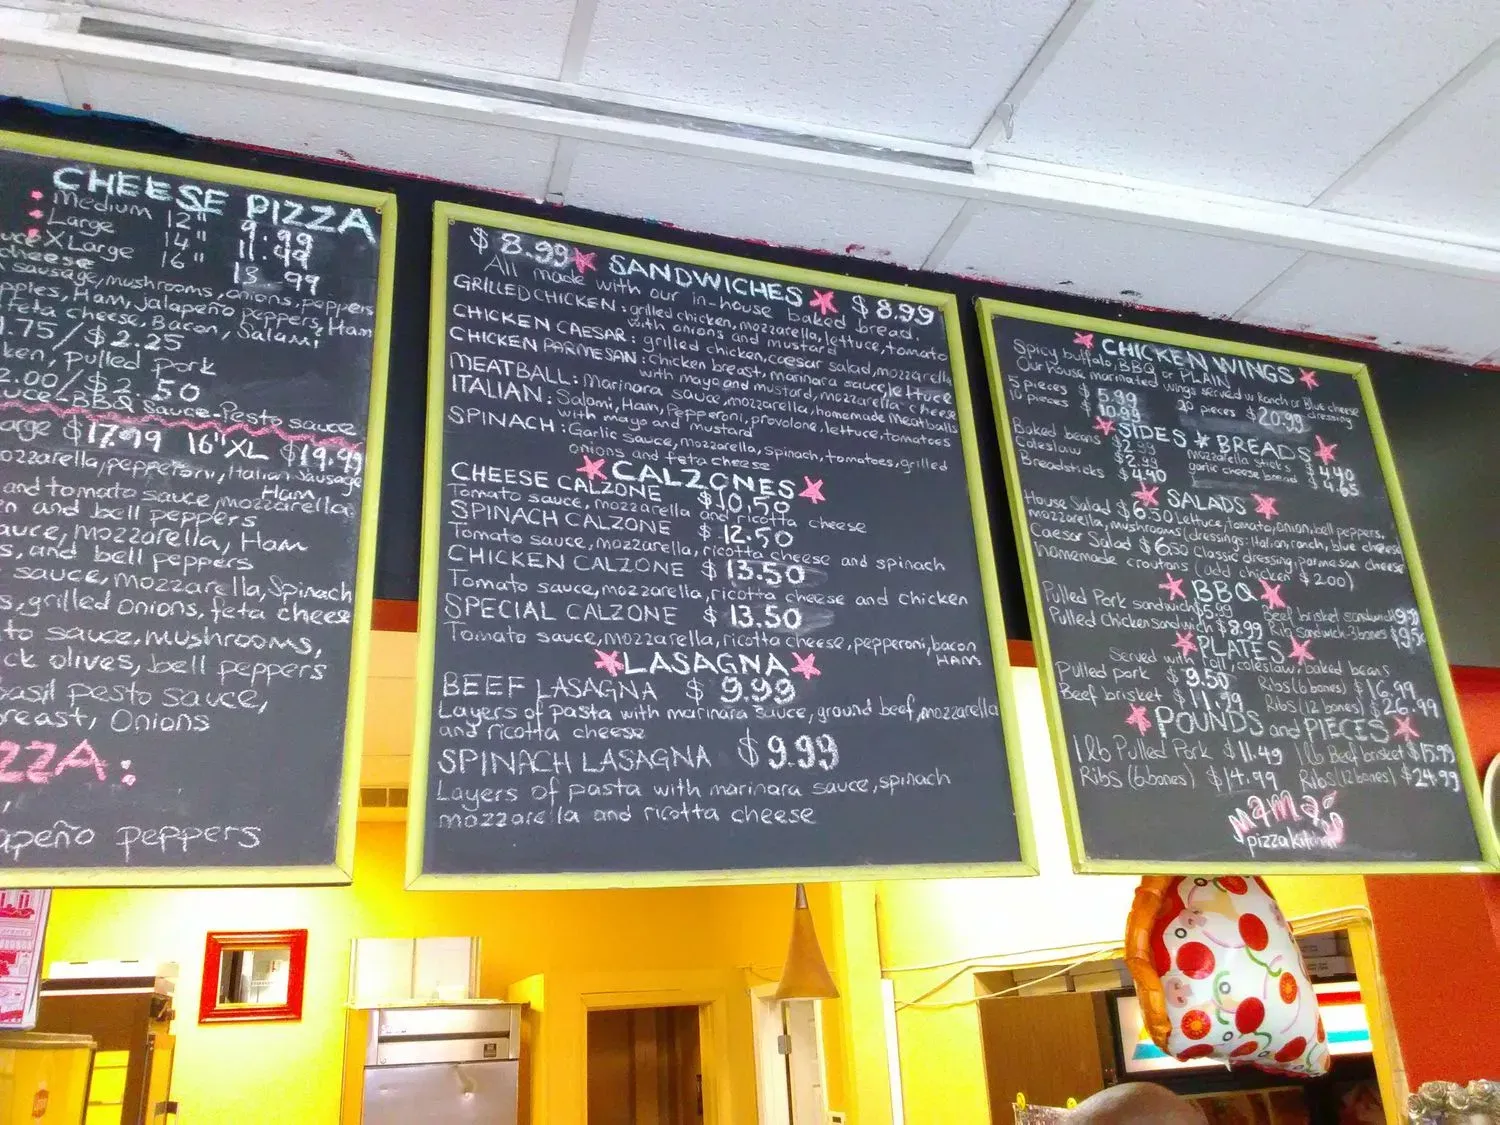 CHEESE PIZZA
Medium 12" 9.99
Large 14" 11.49
X Large 16" 13.99
cheese
sausage, mushrooms, onions, peppers
Ham, jalapeño peppers, Ham
feta cheese, Bacon, Salami
1.75/$2.25
Pulled Pork
2.00/$2.50
BBQ Sauce-Pesto sauce
$17.99 16"XL $19.49
mozzarella, pepperoni, Italian sausage
Ham
and tomato sauce, mozzarella,
and bell peppers
mozzarella, Ham
and bell peppers
sauce, mozzarella, Spinach
grilled onions, feta cheese
sauce, mushrooms,
olives, bell peppers
pesto sauce,
Onions
peppers
$8.99 SANDWICHES $8.99
All made with our in-house baked bread.
GRILLED CHICKEN: grilled chicken, mozzarella, lettuce, tomato
with onions and mustard
CHICKEN CAESAR: grilled chicken, caesar salad, mozzarella
CHICKEN PARMESAN: Chicken breast, marinara sauce, lettuce
with mayo and mustard, mozzarella cheese
MEATBALL: Marinara sauce, mozzarella, homemade meatballs
ITALIAN: Salami, Ham, Pepperoni, provolone, lettuce, tomatoes
with mayo and mustard
SPINACH: Garlic sauce, mozzarella, spinach, tomatoes, grilled
onions and feta cheese
CALZONES
CHEESE CALZONE $10.50
Tomato sauce, mozzarella and ricotta cheese
SPINACH CALZONE $12.50
Tomato sauce, mozzarella, ricotta cheese and spinach
CHICKEN CALZONE $13.50
Tomato sauce, mozzarella, ricotta cheese and chicken
SPECIAL CALZONE $13.50
Tomato sauce, mozzarella, ricotta cheese, pepperoni, bacon
HAM
LASAGNA
BEEF LASAGNA $9.99
Layers of pasta with marinara sauce, ground beef, mozzarella
and ricotta cheese
SPINACH LASAGNA $9.99
Layers of pasta with marinara sauce, spinach
mozzarella and ricotta cheese
CHICKEN WINGS
Spicy buffalo, BBQ or PLAIN
Our house marinated wings served w Ranch or Blue cheese
dressing
5 pieces $5.99
10 pieces $10.99 20 pieces $20.99
SIDES & BREADS
Baked beans $2.99 mozzarella sticks $4.40
Coleslaw $2.99 garlic cheese bread $4.65
Breadsticks $4.40
SALADS
House Salad $6.50 Lettuce, tomato, onion, bell peppers,
mozzarella, mushrooms (dressings: Italian, ranch, blue cheese
Caesar Salad $6.50 Classic dressing, parmesan cheese
homemade croutons (add chicken $2.00)
BBQ
Pulled Pork sandwich $5.99 Beef brisket sandwich
Pulled Chicken sandwich $8.99 Rib sandwich 3 bones
PLATES
Served with roll, coleslaw, baked beans
Pulled pork $9.50 Ribs (6 bones) $16.99
Beef brisket $11.99 Ribs (12 bones) $26.99
POUNDS and PIECES
1 lb Pulled Pork $11.49 1 lb Beef brisket $15.99
Ribs (6 bones) $14.99 Ribs (12 bones) $24.99
mama's
pizza kitchen